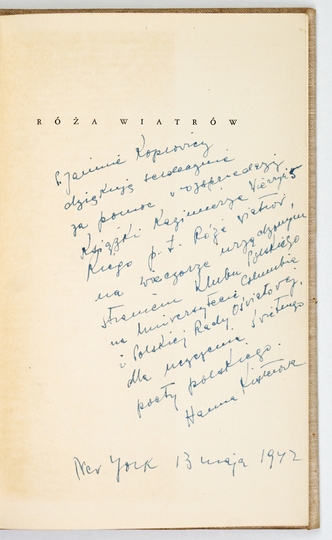 RÓŻA WIATRÓW
P. Janinie Koplowicz
dziękuję serdecznie
za pomoc w rozsprzedaży
książki Kazimierza Wierzyń
skiego p. t. Róża Wiatrów,
na wieczorze urządzonym
staraniem Klubu Polskiego
na Uniwersytecie Columbia
i Polskiej Rady Oświatowej,
dla uczczenia świetnego
poety polskiego.
Hanna Kister
New York 13 maja 1942